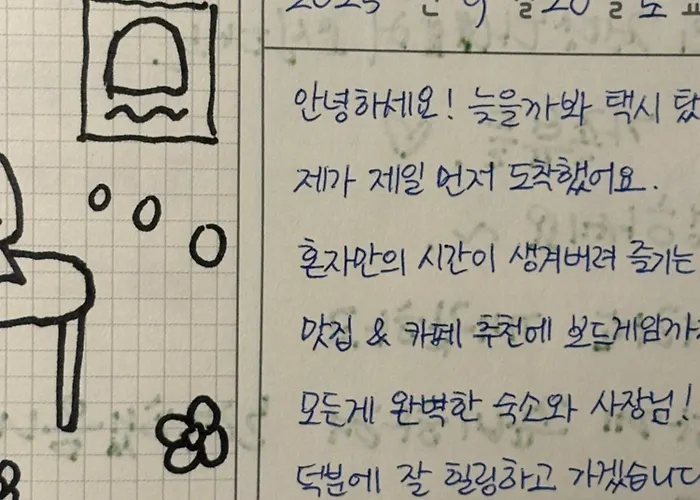 2025 년 9 월 20 일 토
안녕하세요! 늦을까봐 택시 탔
제가 제일 먼저 도착했어요.
혼자만의 시간이 생겨버려 즐기는
맛집 & 카페 추천에 보드게임까지
모든게 완벽한 숙소와 사장님!
덕분에 잘 힐링하고 가겠습니다